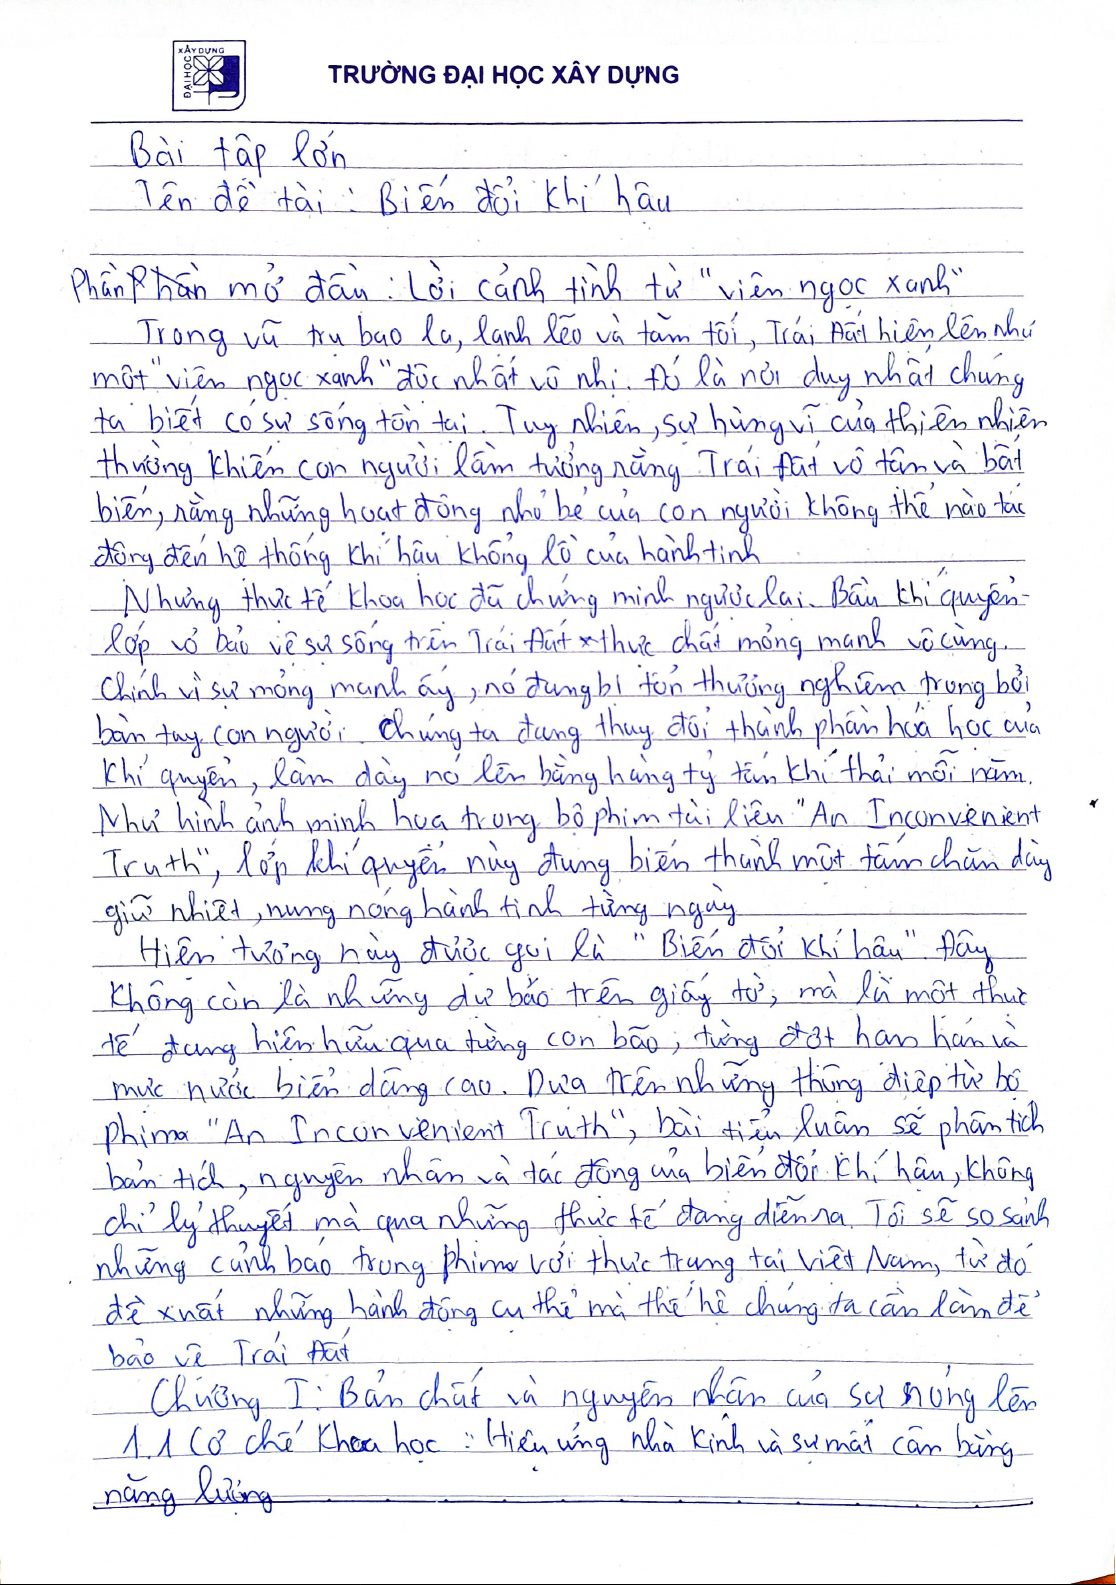 XÂY DỰNG
ĐẠI HỌC
TRƯỜNG ĐẠI HỌC XÂY DỰNG
Bài tập lớn
Tên đề tài : Biến đổi khí hậu
Phần mở đầu : Lời cảnh tỉnh từ "viên ngọc xanh"
Trong vũ trụ bao la, lạnh lẽo và tăm tối, Trái Đất hiện lên như
một "viên ngọc xanh" độc nhất vô nhị. Đó là nơi duy nhất chúng
ta biết có sự sống tồn tại. Tuy nhiên, sự hùng vĩ của thiên nhiên
thường khiến con người lầm tưởng rằng Trái Đất vô tận và bất
biến, rằng những hoạt động nhỏ bé của con người không thể nào tác
động đến hệ thống khí hậu khổng lồ của hành tinh
Nhưng thực tế khoa học đã chứng minh ngược lại. Bầu khí quyển -
lớp vỏ bảo vệ sự sống trên Trái Đất thực chất mỏng manh vô cùng.
Chính vì sự mỏng manh ấy, nó đang bị tổn thương nghiêm trọng bởi
bàn tay con người. Chúng ta đang thay đổi thành phần hoá học của
khí quyển, làm dày nó lên bằng hàng tỷ tấn khí thải mỗi năm.
Như hình ảnh minh họa trong bộ phim tài liệu "An Inconvenient
Truth", lớp khí quyển này đang biến thành một tấm chăn dày
giữ nhiệt, nung nóng hành tinh từng ngày
Hiện tượng này được gọi là "Biến đổi khí hậu" Đây
không còn là những dự báo trên giấy tờ, mà là một thực
tế đang hiện hữu qua từng cơn bão, từng đợt hạn hán và
mực nước biển dâng cao. Dựa trên những thông điệp từ bộ
phim "An Inconvenient Truth", bài tiểu luận sẽ phân tích
bản tích, nguyên nhân và tác động của biến đổi khí hậu, không
chỉ lý thuyết mà qua những thực tế đang diễn ra. Tôi sẽ so sánh
những cảnh báo trong phim với thực trạng tại Việt Nam, từ đó
đề xuất những hành động cụ thể mà thế hệ chúng ta cần làm để
bảo vệ Trái Đất
Chương I : Bản chất và nguyên nhân của sự nóng lên
1.1 Cơ chế khoa học : Hiệu ứng nhà kính và sự mất cân bằng
năng lượng